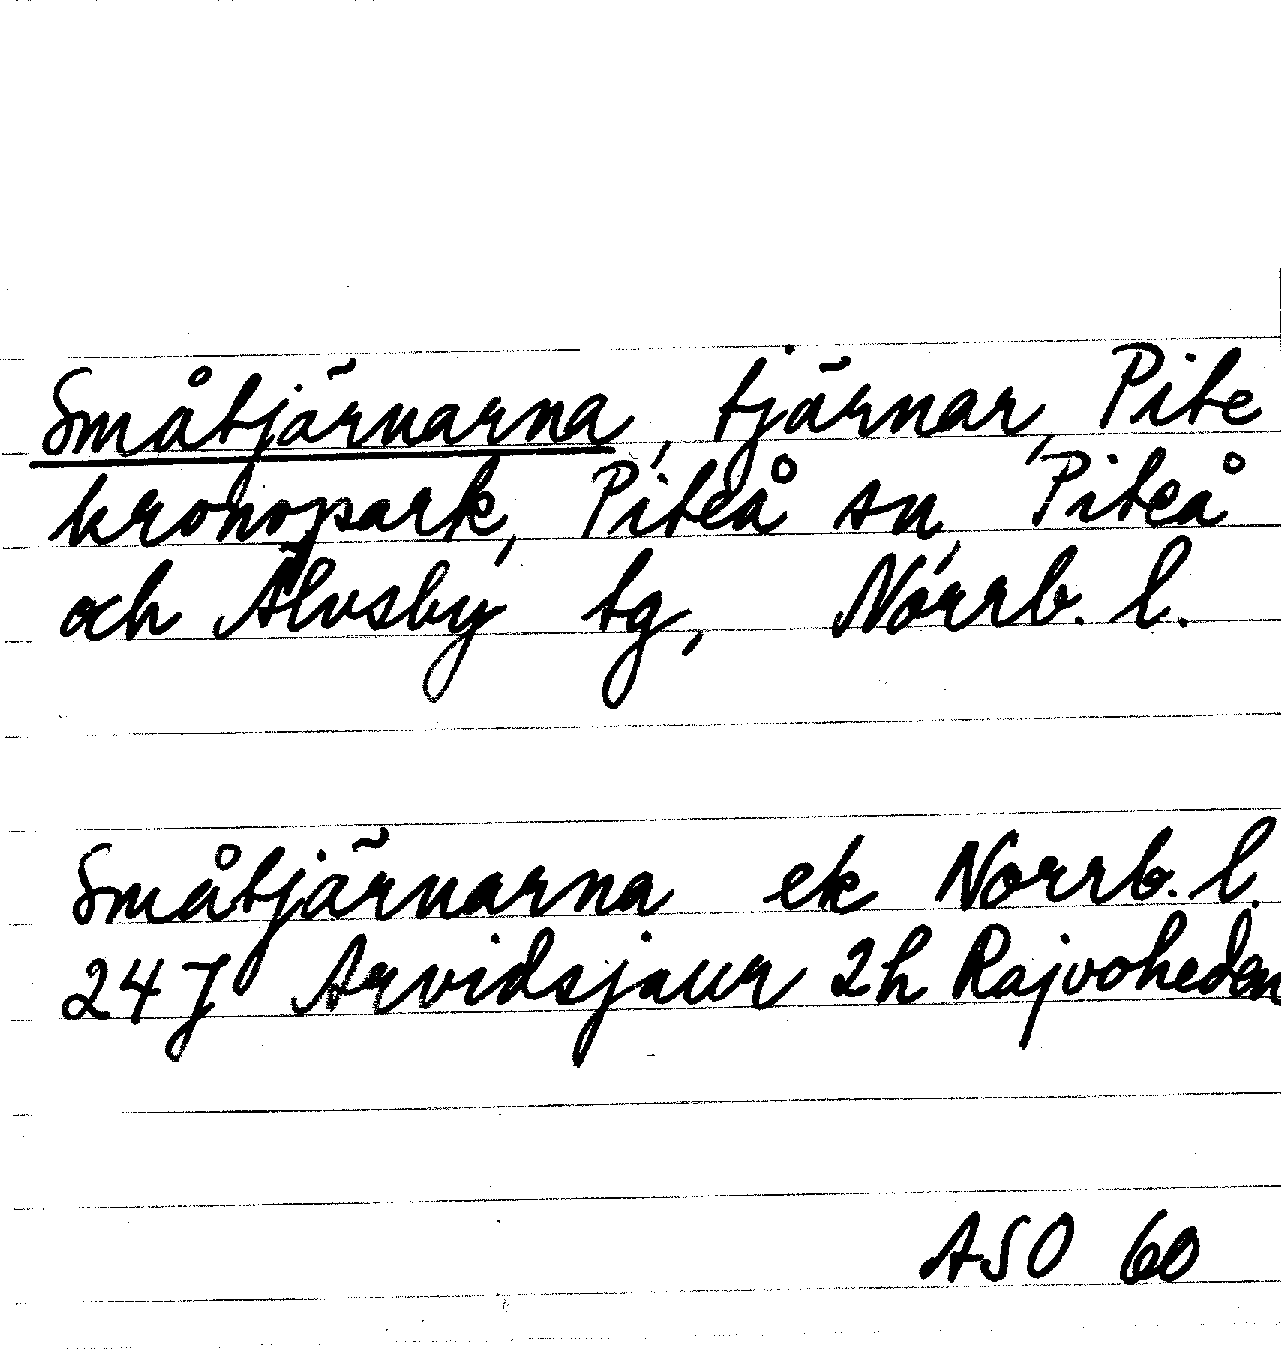 Småtjärnarna, tjärnar, Pite
kronopark, Piteå sn, Piteå
och Älvsby tg, Norrb. l.
Småtjärnarna ek Norrb. l.
24 J Arvidsjaur 2h Rajvoheden
ASO 60